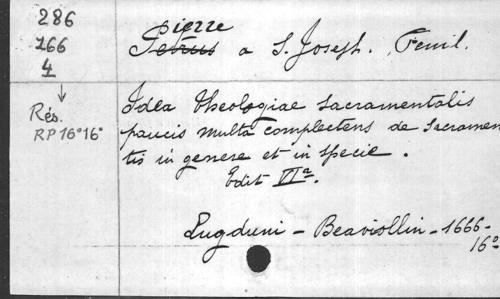 286
166
4
Rés.
RP 16° 16°
Pierre
Petrus a S. Joseph. Feuil.
Idea theologiae sacramentalis
paucis multa complectens de sacramen
tis in genere et in specie.
Edit VIa.
Lugduni - Beaujollin - 1666 -
16°